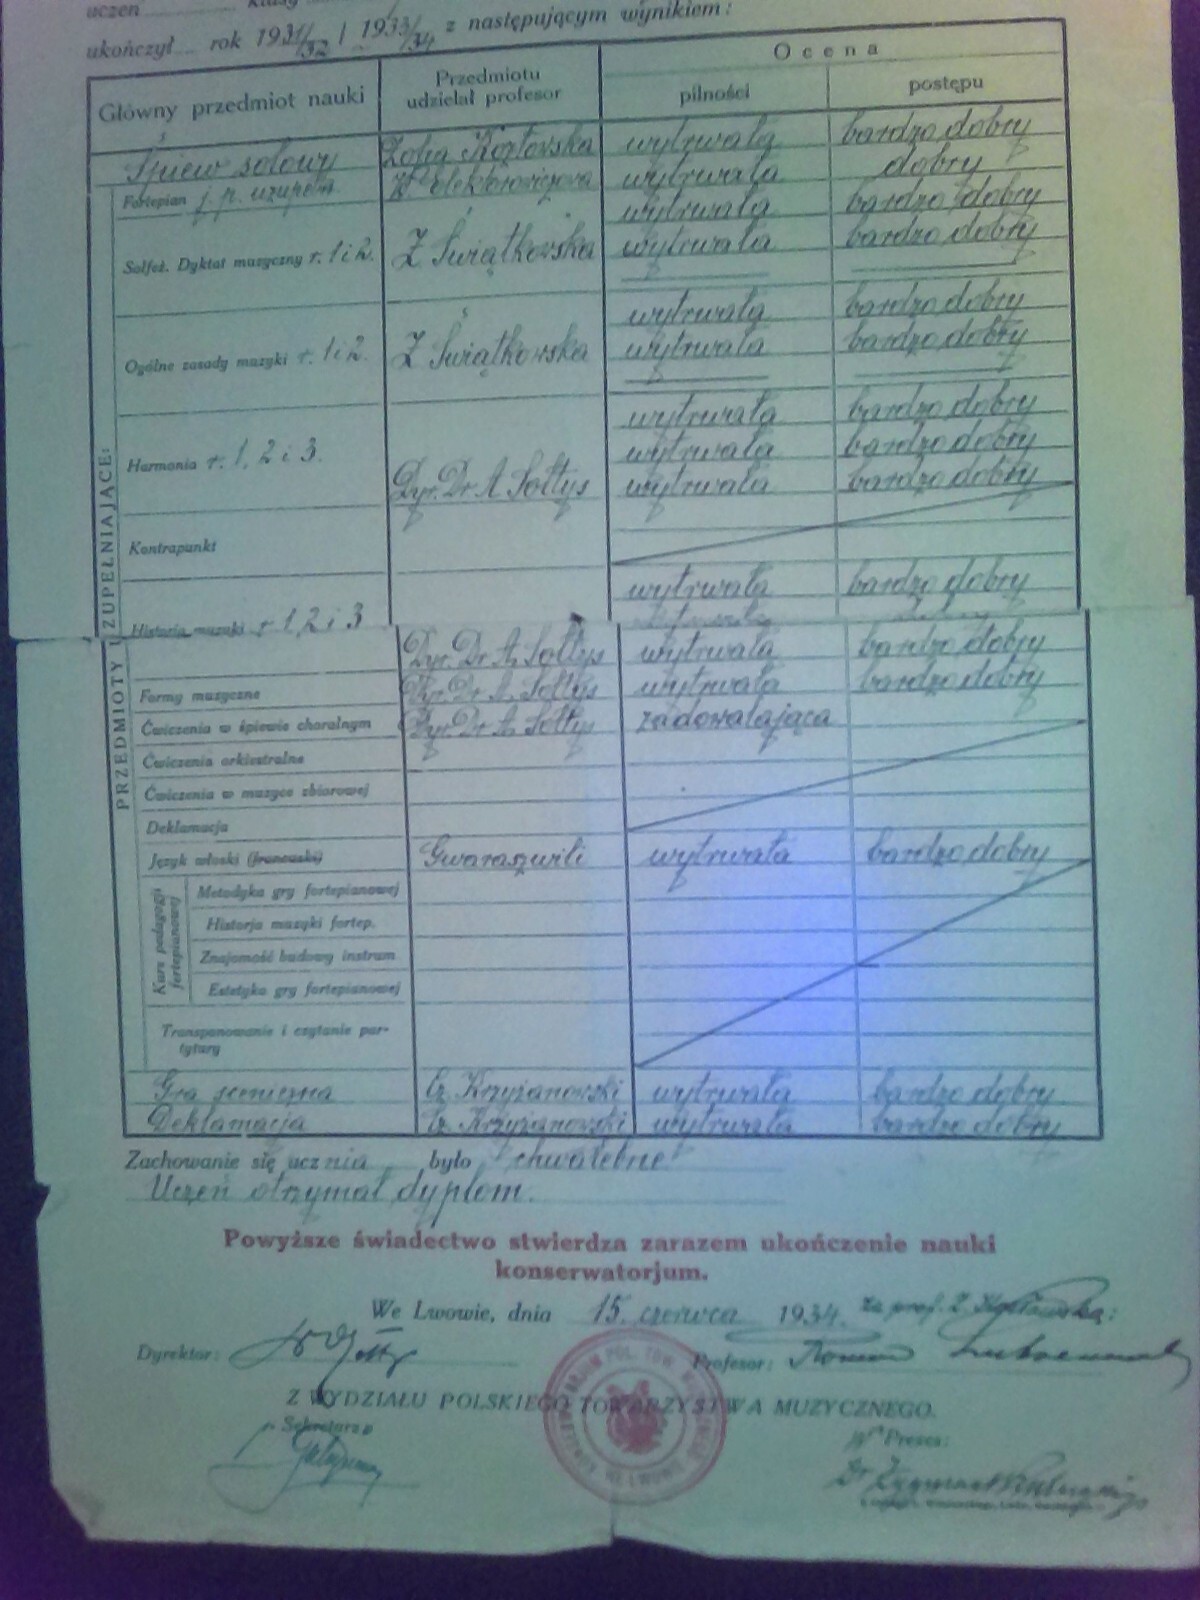 uczeń klasy
ukończył rok 1931/32 i 1933/34 z następującym wynikiem:
Główny przedmiot nauki
Przedmiotu
udzielał profesor
Ocena
pilności
postępu
Śpiew solowy Zofia Kozłowska wytrwałą bardzo dobry
Fortepian j. p. uzupełn. wytrwała dobry
wytrwałą bardzo dobry
Solfeż. Dyktat muzyczny r. 1 i 2. Z Świątkowska wytrwała bardzo dobry
wytrwałą bardzo dobry
Ogólne zasady muzyki r. 1 i 2. Z Świątkowska wytrwała bardzo dobry
wytrwała bardzo dobry
Harmonia r. 1, 2 i 3. wytrwała bardzo dobry
Dyr. Dr A Sołtys wytrwała bardzo dobry
Kontrapunkt
wytrwała bardzo dobry
Historja muzyki r 1, 2 i 3
Dyr. Dr A. Sołtys wytrwała bardzo dobry
Formy muzyczne Dyr. Dr A. Sołtys wytrwała bardzo dobry
Ćwiczenia w śpiewie choralnym Dyr. Dr A. Sołtys zadowalająca
Ćwiczenia orkiestralne
Ćwiczenia w muzyce zbiorowej
Deklamacja
Język włoski (francuski) Gwaraszwili wytrwała bardzo dobry
Kurs pedagogji
fortepianowej
Metodyka gry fortepianowej
Historja muzyki fortep.
Znajomość budowy instrum
Estetyka gry fortepianowej
Transponowanie i czytanie par-
tytury
PRZEDMIOTY UZUPEŁNIAJĄCE:
Gra sceniczna Cz. Krzyżanowski wytrwała bardzo dobry
Deklamacja Cz. Krzyżanowski wytrwała bardzo dobry
Zachowanie się ucznia było chwalebne
Uczeń otrzymał dyplom.
Powyższe świadectwo stwierdza zarazem ukończenie nauki
konserwatorjum.
We Lwowie, dnia 15. czerwca 1934. za prof. Z. Kozłowską:
Dyrektor: Profesor:
Z WYDZIAŁU POLSKIEGO TOWARZYSTWA MUZYCZNEGO.
Sekretarz
Prezes:
Dr Zygmunt